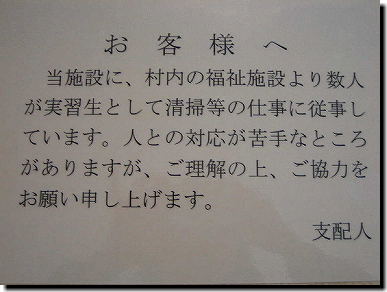 お客様へ
当施設に、村内の福祉施設より数人
が実習生として清掃等の仕事に従事し
ています。人との対応が苦手なところ
がありますが、ご理解の上、ご協力を
お願い申し上げます。
支配人